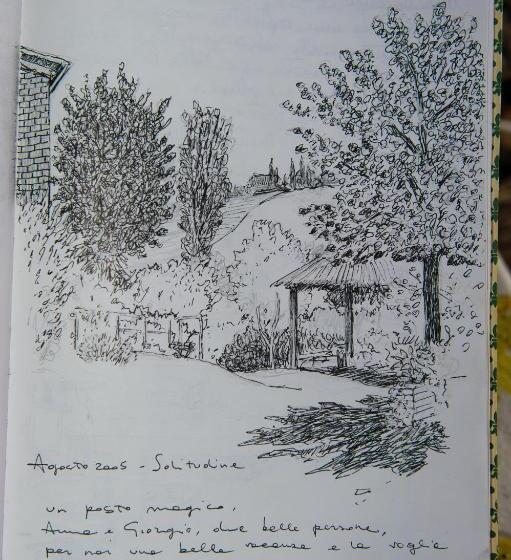 Agosto 2005 - Solitudine
un posto magico,
Anna e Giorgio, due belle persone,
per noi una bella vacanza e la voglia